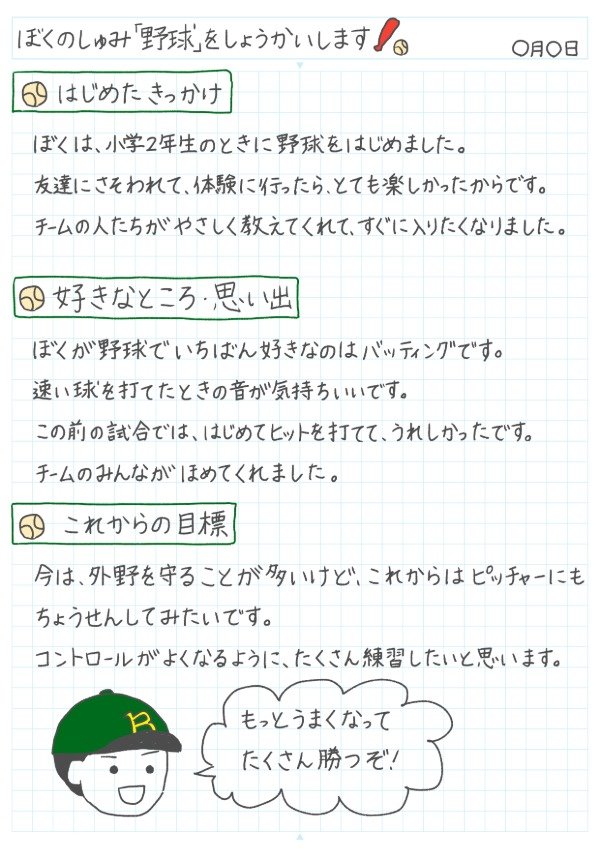 ぼくのしゅみ「野球」をしょうかいします
〇月〇日
はじめたきっかけ
ぼくは、小学2年生のときに野球をはじめました。
友達にさそわれて、体験に行ったら、とても楽しかったからです。
チームの人たちがやさしく教えてくれて、すぐに入りたくなりました。
好きなところ・思い出
ぼくが野球でいちばん好きなのはバッティングです。
速い球を打てたときの音が気持ちいいです。
この前の試合では、はじめてヒットを打てて、うれしかったです。
チームのみんながほめてくれました。
これからの目標
今は、外野を守ることが多いけど、これからはピッチャーにも
ちょうせんしてみたいです。
コントロールがよくなるように、たくさん練習したいと思います。
B
もっとうまくなって
たくさん勝つぞ!